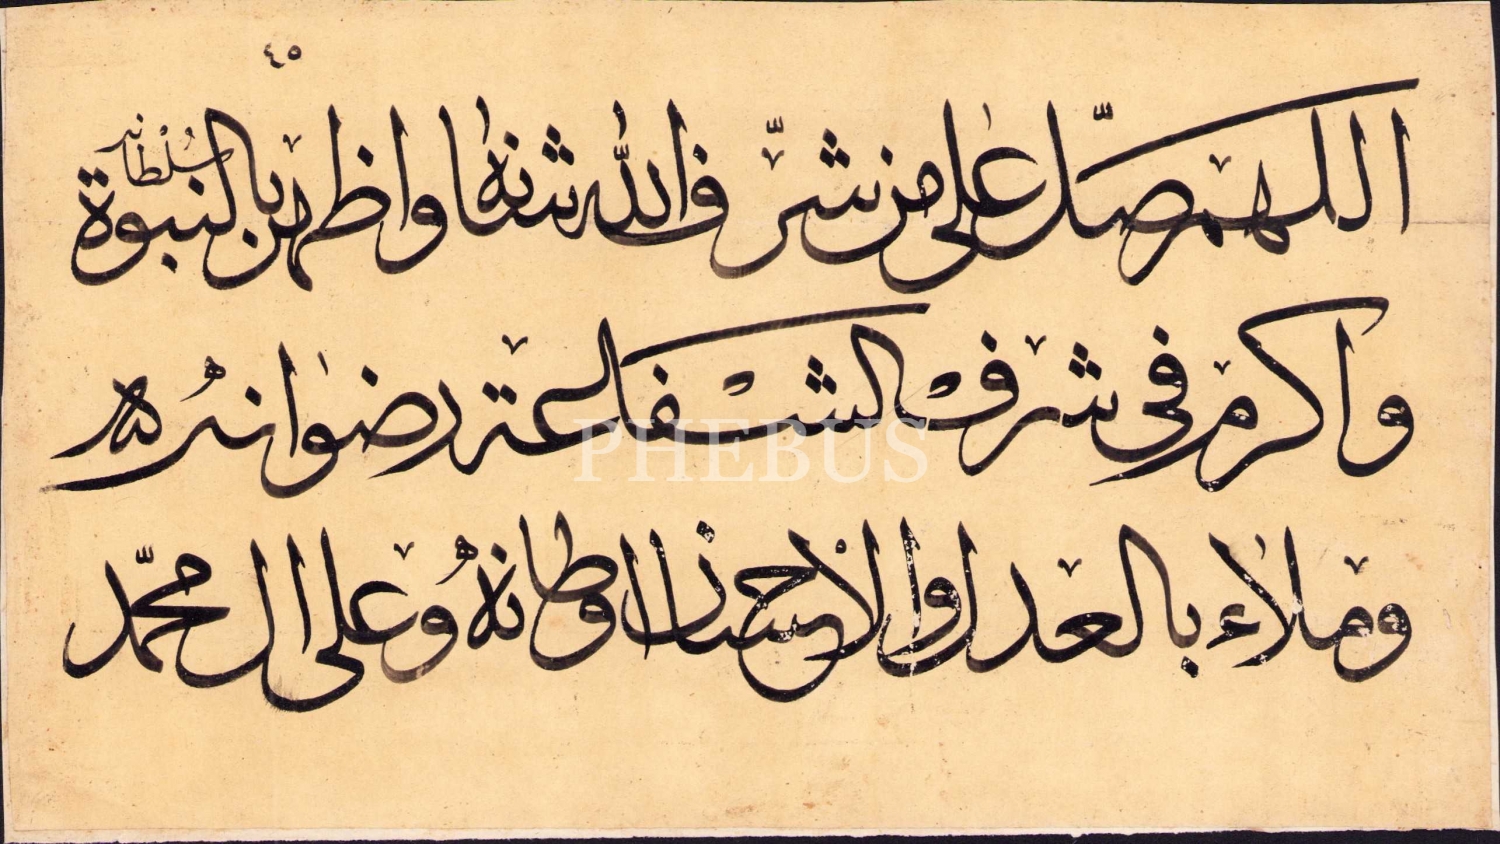 ٤٥
اللهم صلّ على من شرّف الله شانه واظهر بالنبوة سُلْطانه
واكرم فى شرف الشفاعة رضوانه
وملاء بالعدل والاحسان اوطانهُ وعلى ال محمّد
PHEBUS